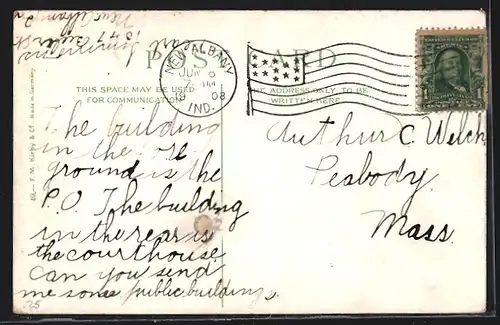 POST CARD
THIS SPACE MAY BE USED
FOR COMMUNICATION
THE ADDRESS ONLY TO BE
WRITTEN HERE
NEW ALBANY
JUN 8
08
IND.
The building
in the fore
ground is the
P.O. The building
in the rear is
the courthouse
Can you send
me some public buildings
Arthur C. Welch
Peabody
Mass.
1347
New Albany
F. M. Kirby & Co. Made in Germany